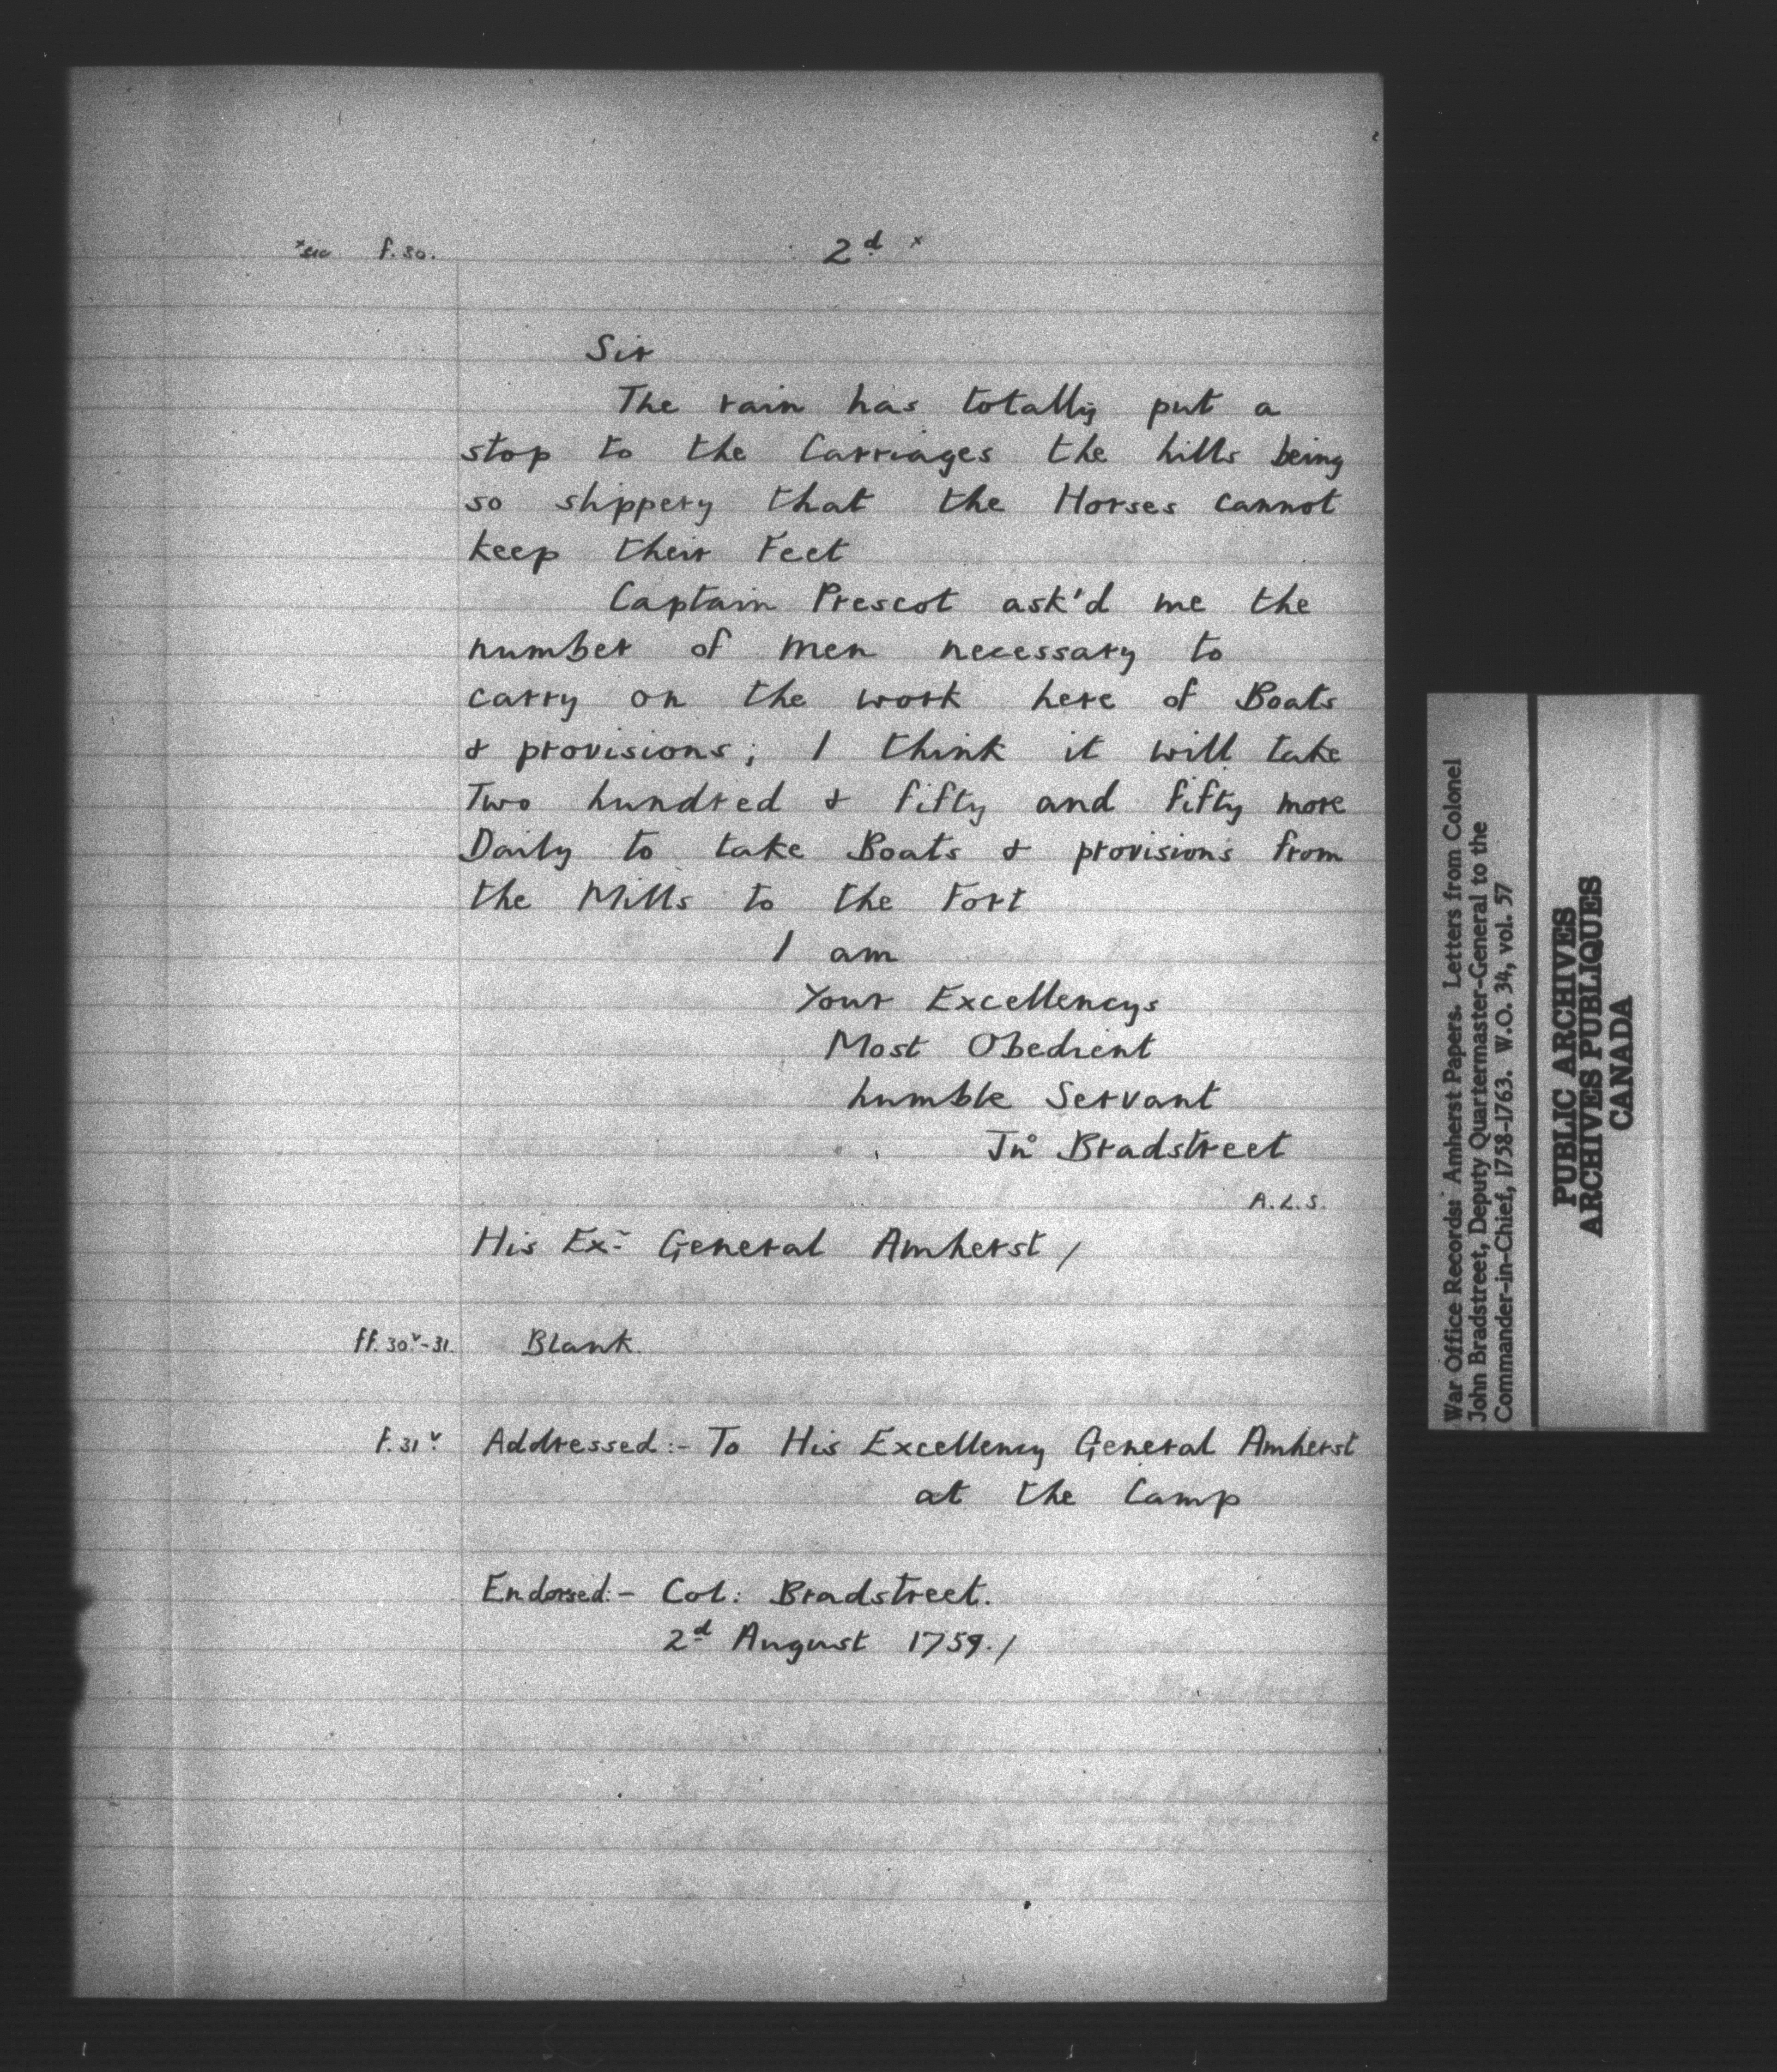 *sic f.30. 2d x
Sir
The rain has totally put a
stop to the Carriages the hills being
so slippery that the Horses cannot
keep their Feet
Captain Prescot ask'd me the
number of men necessary to
carry on the work here of Boats
& provisions; I think it will take
Two hundred & fifty and fifty more
Daily to take Boats & provisions from
the Mills to the Fort
I am
Your Excellencys
Most Obedient
humble Servant
Jno Bradstreet
A.L.S.
His Ex- General Amherst /
ff. 30v-31. Blank.
f.31v. Addressed:- To His Excellency General Amherst
at the Camp
Endorsed:- Col: Bradstreet.
2d August 1759./
War Office Records: Amherst Papers. Letters from Colonel
John Bradstreet, Deputy Quartermaster-General to the
Commander-in-Chief, 1758-1763. W.O. 34, vol. 57
PUBLIC ARCHIVES
ARCHIVES PUBLIQUES
CANADA